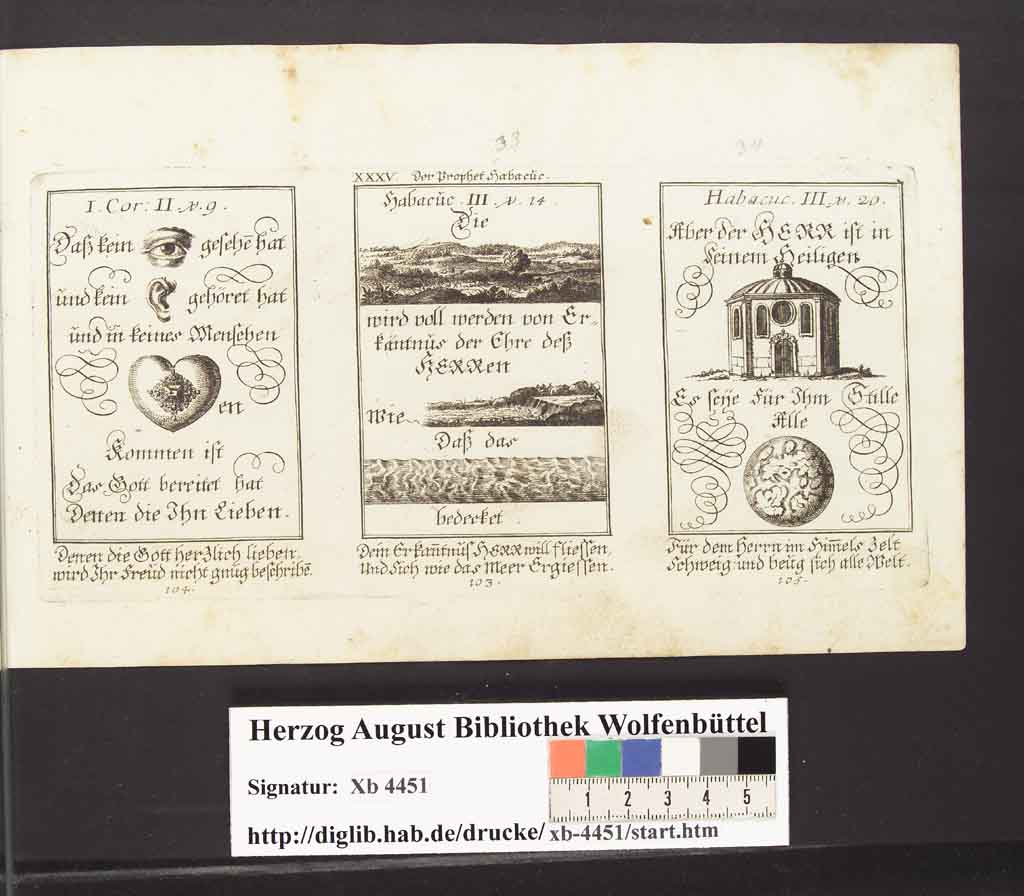 33
34
I. Cor: II. v. 9.
Daß kein gesehē hat
und kein gehöret hat
und in keines Menschen
en
Kommen ist
Das Gott bereitet hat
Denen die Ihn Lieben.
Denen die Gott herzlich lieben,
wird Ihr Freud nicht gnug beschribē.
104.
XXXV. Der Prophet Habacuc.
Habacuc. III. v. 14.
Die
wird voll werden von Er-
käntnus der Ehre deß
HERRen
Wie
Daß das
bedecket
Dein Erkañtnuß HERR will fliessen,
Und sich wie das Meer Ergiessen.
103.
Habacuc. III. v. 20.
Aber der HERR ist in
seinem Heiligen
Es seÿe Für Ihm Stille
Alle
Für dem Herrn im Him̄els Zelt
Schweig und beüg sich alle Welt.
105.
Herzog August Bibliothek Wolfenbüttel
Signatur: Xb 4451
1 2 3 4 5
http://diglib.hab.de/drucke/xb-4451/start.htm